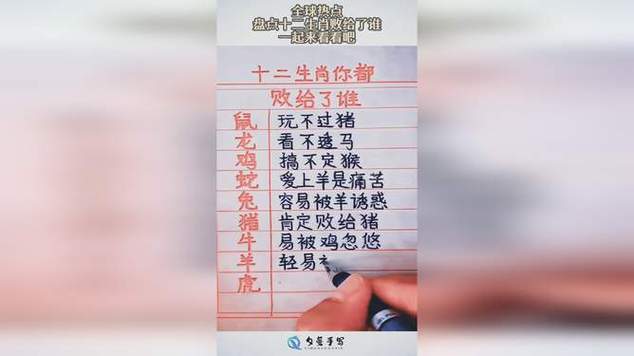 全球热点
盘点十二生肖败给了谁
一起来看看吧
十二生肖你都
败给了谁
鼠 玩不过猪
龙 看不透马
鸡 搞不定猴
蛇 爱上羊是痛苦
兔 容易被羊诱惑
猪 肯定败给猪
牛 易被鸡忽悠
羊 轻易
虎